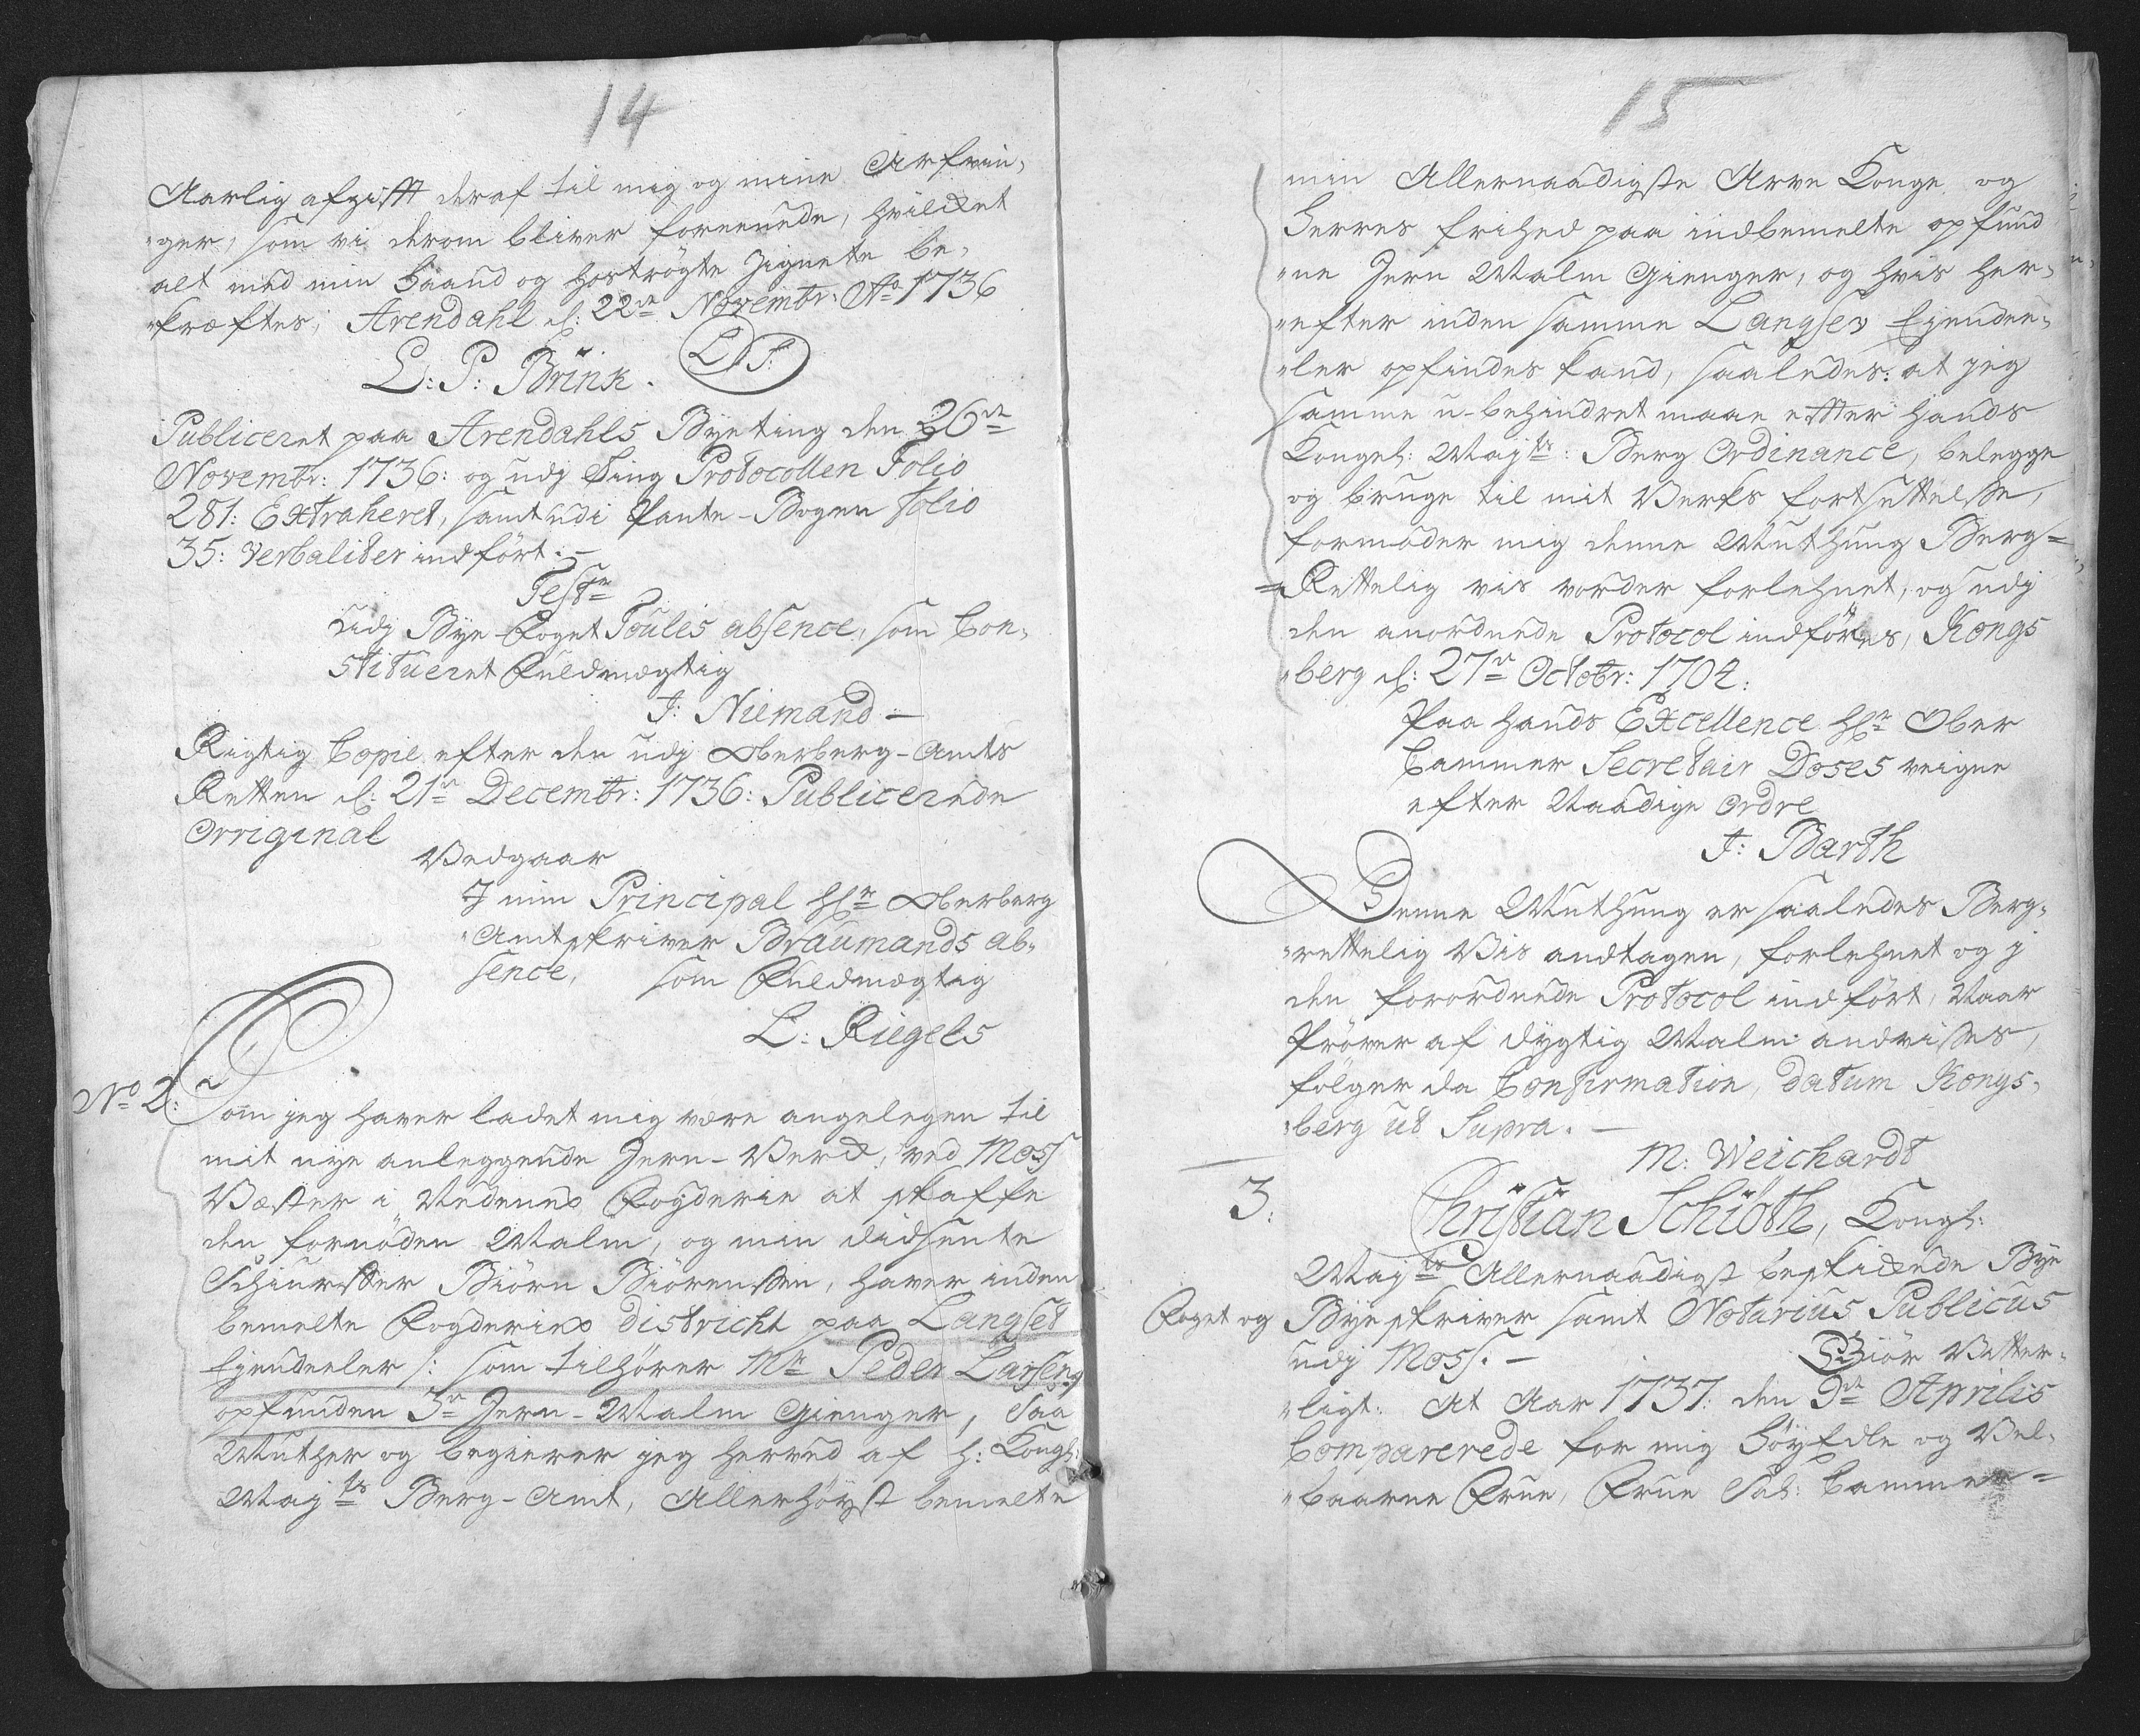 14
Aarlig afgifft deraf til mig og mine Arfvin,
"ger, som vi derom bliver foreenede, hvilcket
alt med min Haand og hoströgte Zignete be,
"kræftes; Arendahl d: 22de Novembr: Ao 1736
L: P: Brink. (LS)
Publiceret paa Arendahls Byeting den 26de
Novembr: 1736: og udj Ting Protocollen Folio
281: Extraheret, samt udi Pante-Bogen folio
35: verbaliter indfört:-
Teste
udj Bye-Foget Toules absence, som Con,
stitueret Fuldmægtig
J: Niemand -
Rigtig Copie efter den udj Oberberg-Amts
Retten d: 21de Decembr: 1736: Publicerede
Orriginal
Vedgaar
I min Principal Hr: Oberberg
"Amtskriver Braumands ab,
sence, som Fuldmægtig
L: Riegels
No 2: Som jeg haver ladet mig være angelegen til
mit nye anleggende Jern-Verck, ved Moss
Væster i Nedenes Fogderie at skaffe
den fornöden Malm, og min didsente
Schiurffer Biörn Biörenssen, haver inden
bemelte Fogderies District paa Langset
Ejendeeler /: som tilhörer Mr Peder Larsen:/
opfunden 3de Jern-Malm Gienger, Saa
Muther og begierer jeg herved af H: Kongl:
Mayts Berg-Amt, Allerhöyst bemelte
15
min Allernaadigste Arve Konge og
Herres frihed paa indbemelte opfund
"ne Jern Malm Gienger, og hvis her,
"efter inden samme Langsev Ejendee,
"ler opfindes kand, saaledes: at jeg
samme u-behindret maae efter Hands
Kongel: Mayts: Berg Ordinance, belegge
og bruge til mit Verks fortsettelse,
formoder mig denne Muthung Berg=
=Rettelig vis vorder forlehnet, og udj
den anordnede Protocol indföres, Kongs
"berg d: 27de Octobr: 1704:
Paa Hands Excellence Hr: Ober
Cammer Secretair Doses veigne
efter Naadige Ordre
J: Barth
Denne Muthung er saaledes Berg,
"rettelig Vis andtagen, forlehnet og j
den forordnede Protocol indfört, Naar
Pröver af dygtig Malm andvisses,
fölger da Confirmation, Datum Kongs,
"berg ut Supra. -
M: Weichardt
3: Christian Schiöth, Kongl:
Mayts Allernaadigst beskickede Bye
Foget og Byeskriver samt Notarius Publicus
udj Moss. - Giör Vitter,
"ligt: At Aar 1737: den 9de Aprilis
Comparerede for mig Höyædle og Vel,
"baarne Frue, Frue Sal: Cammer=